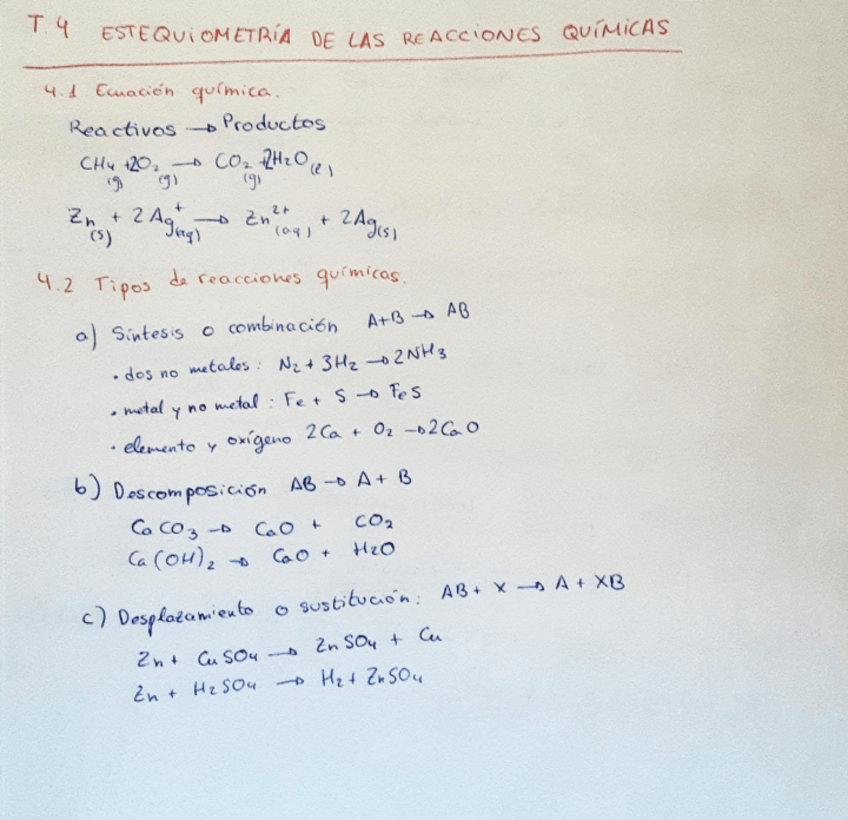 T4 ESTEQUIOMETRÍA DE LAS REACCIONES QUÍMICAS
4.1 Ecuación química.
Reactivos → Productos
CH₄(g) + 2O₂(g) → CO₂(g) + 2H₂O(l)
Zn(s) + 2Ag⁺(aq) → Zn²⁺(aq) + 2Ag(s)
4.2 Tipos de reacciones químicas.
a) Síntesis o combinación A+B → AB
· dos no metales: N₂ + 3H₂ → 2NH₃
· metal y no metal: Fe + S → FeS
· elemento y oxígeno 2Ca + O₂ → 2CaO
b) Descomposición AB → A + B
CaCO₃ → CaO + CO₂
Ca(OH)₂ → CaO + H₂O
c) Desplazamiento o sustitución: AB + X → A + XB
Zn + CuSO₄ → ZnSO₄ + Cu
Zn + H₂SO₄ → H₂ + ZnSO₄